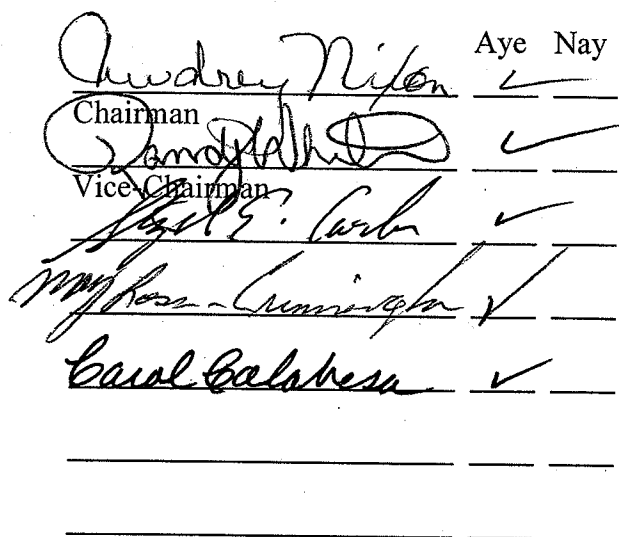 Aye Nay
Audrey Nixon ✓
Chairman
Randy Whit ✓
Vice-Chairman
E. Carlson ✓
Mary Ross-Cunningham ✓
Carol Calabresa ✓